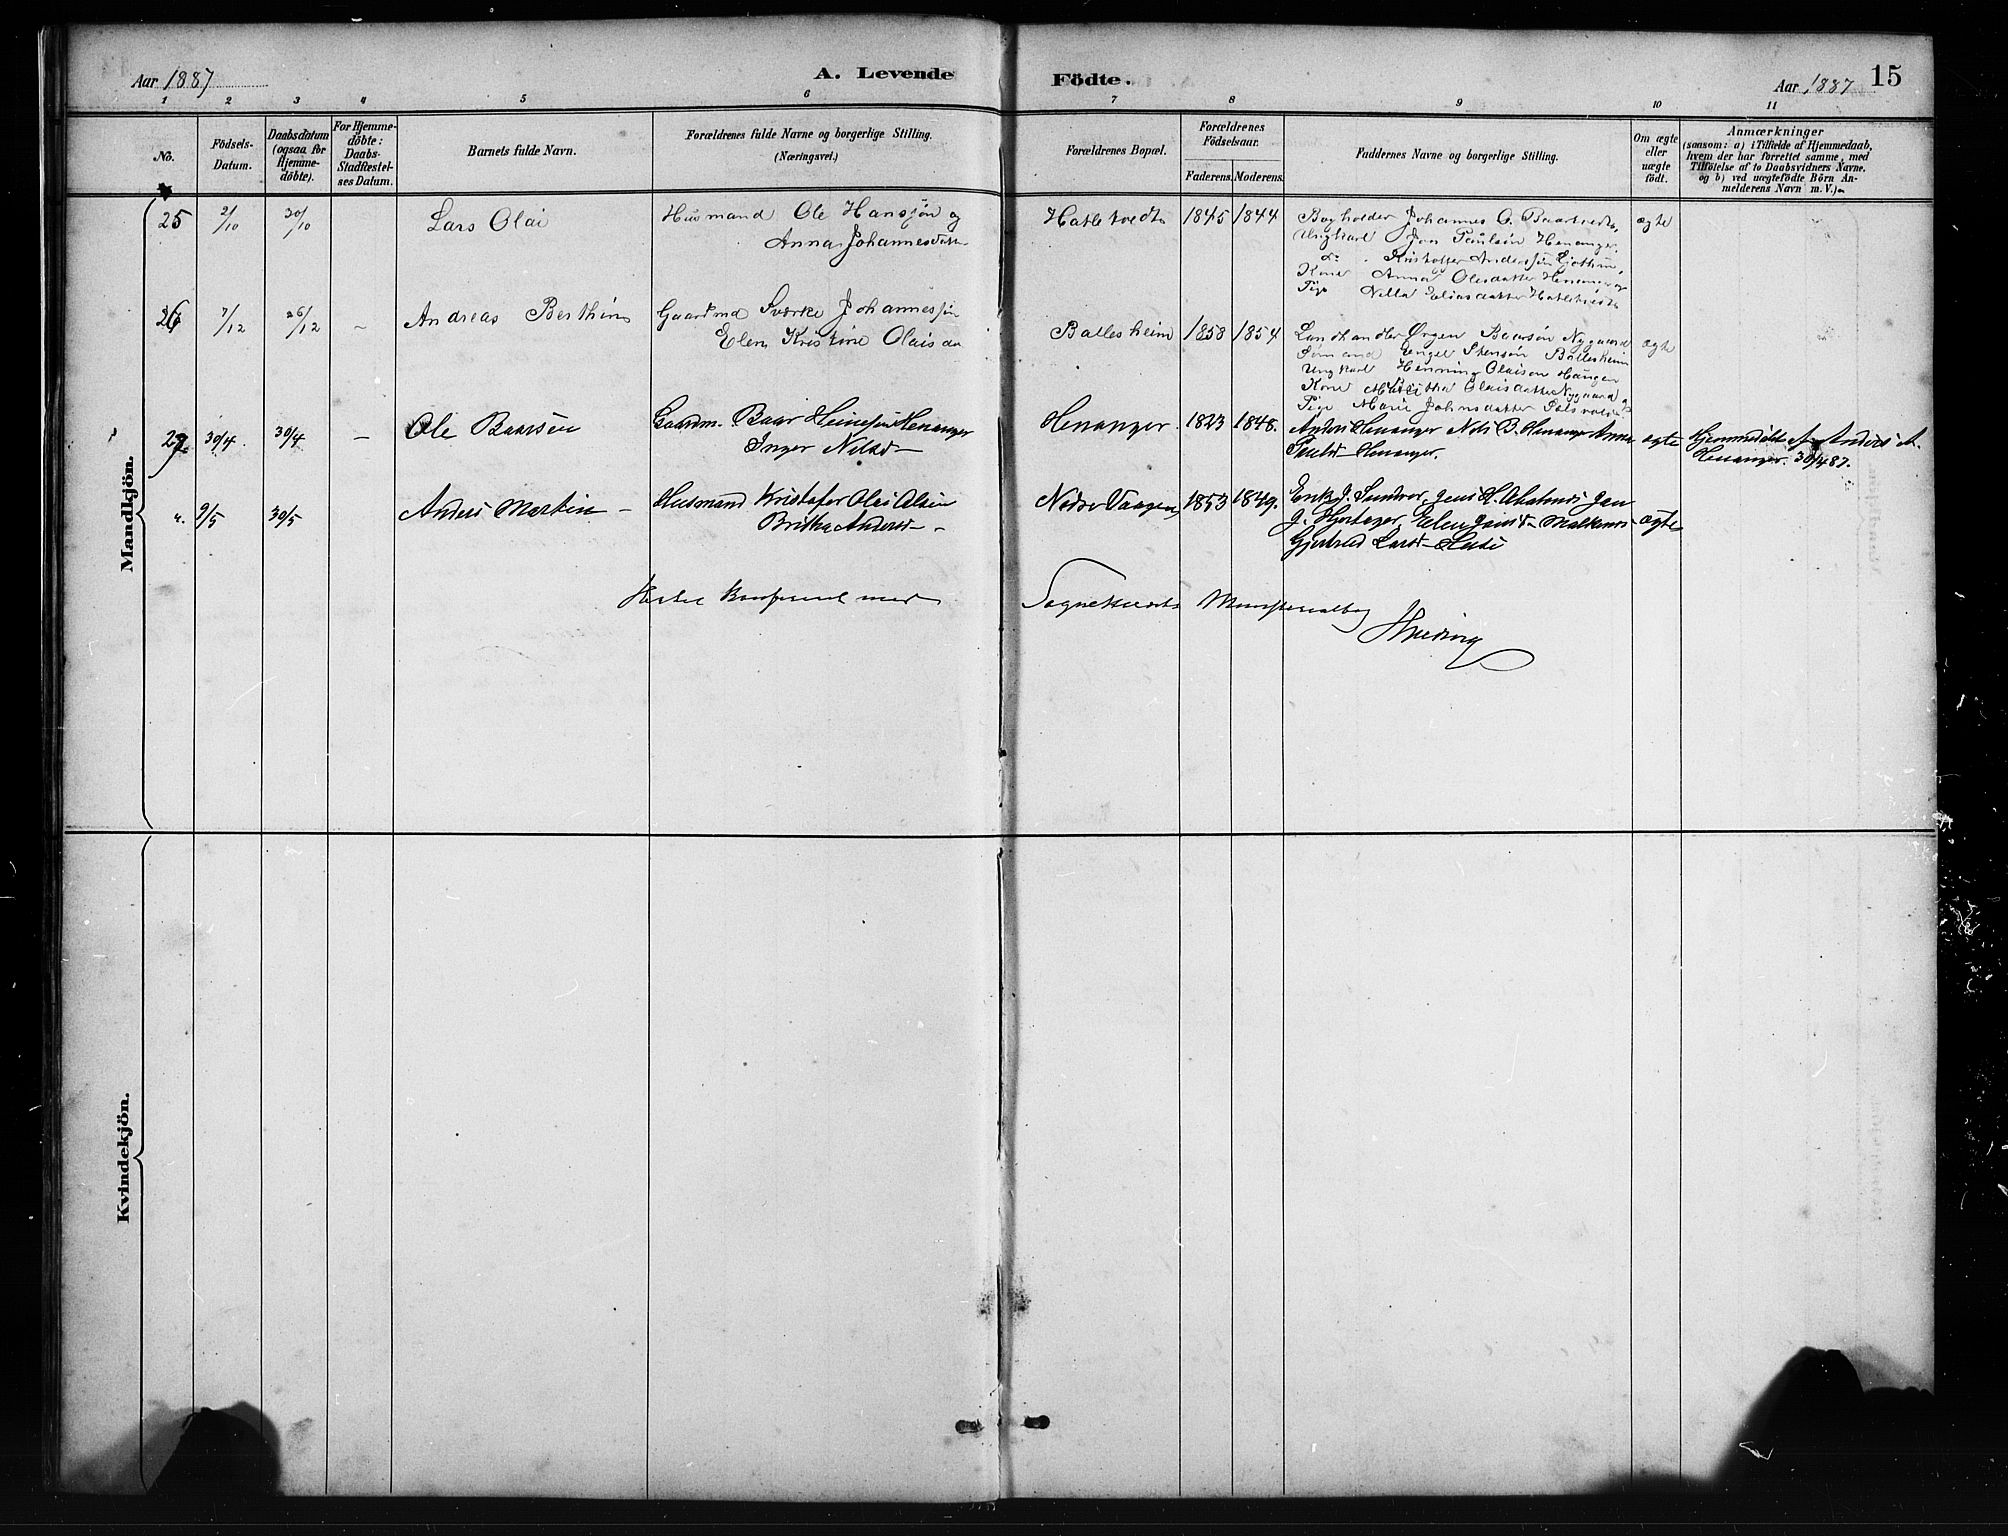 Aar 1887
A. Levende
Födte.
Aar 1887
15
1 2 3 4 5 6 7 8 9 10 11
No.
Födsels-
Datum.
Daabsdatum
(ogsaa for
Hjemme-
döbte).
For Hjemme-
döbte:
Daabs-
Stadfæstel-
ses Datum.
Barnets fulde Navn.
Forældrenes fulde Navne og borgerlige Stilling.
(Næringsvei.)
Forældrenes Bopæl.
Forældrenes
Födselsaar.
Faderens.
Moderens.
Faddernes Navne og borgerlige Stilling.
Om ægte
eller
uægte
födt.
Anmærkninger
(saasom: a) i Tilfælde af Hjemmedaab,
hvem der har forrettet samme, med
Tilföielse af to Daabsvidners Navne,
og b) ved uægtefödte Börn An-
melderens Navn m. V.)
Mandkjön.
25
2/10
30/10
Lars Olai
Husmand Ole Hansøn og
Anna Johannesdatter
Hatletvedt
1845
1844
Johannes O. Baartvedt,
Ungkarl Jon Paulsøn Henanger,
do. Kristoffer Anderssøn
Kone Anna Olesdatter Henanger og
Pige Nilla Eliasdatter Hatletvedt
ægte
26
7/12
26/12
-
Andreas Berthin
Gaardmd Sverke Johannessøn
Elen Kristine Olaisda
Ballesheim
1858
1854
Landhandler Ørgen Baarsøn Nygaard
Engel Stensøn Ballesheim
Ungkarl Henning Olaisøn Haugen
Kone Olaisdatter Nygaard og
Pige Marie Johnsdatter
ægte
27
30/4.
30/4
-
Ole Baarsen
Gaardm. Baar Heinesøn Henanger
Inger Nilsd-
Henanger.
1823
1848.
Anders Henanger Nils B. Henanger Anna
Paulsd- Henanger.
ægte
Hjemmedöbt af Anders A.
Henanger. 30/4 87.
4.
9/5
30/5
Anders Martin -
Husmand Kristofer Olai Olsen
Britha Andersd- -
Nedre Vaagen
1853
1849.
Erik J. Sundvor, Jens H. Jan
J. Hjortager, Elen Jansd-
Gjertrud Larsd-
ægte
Sognekaldets Ministerialbog
Kvindekjön.